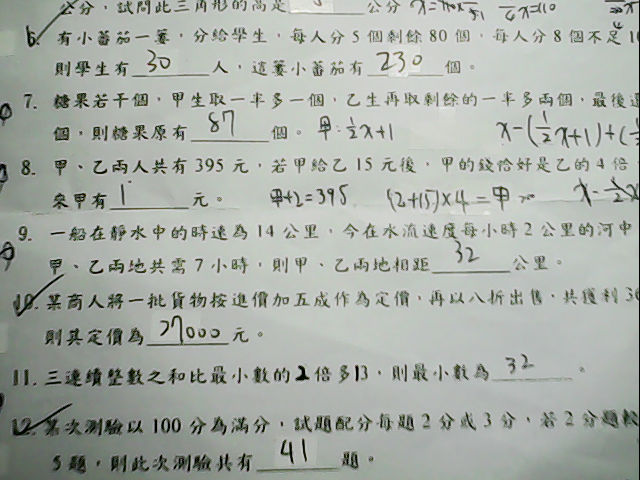 公分，試問此三角形的高是 公分
6. 有小蕃茄一簍，分給學生，每人分 5 個剩餘 80 個，每人分 8 個不足 10
則學生有 30 人，這簍小蕃茄有 230 個。
7. 糖果若干個，甲生取一半多一個，乙生再取剩餘的一半多兩個，最後還
個，則糖果原有 87 個。 甲：½x+1 x-(½x+1)+(
8. 甲、乙兩人共有 395 元，若甲給乙 15 元後，甲的錢恰好是乙的 4 倍
來甲有 1 元。 甲+2=395 (2+15)×4=甲
9. 一船在靜水中的時速為 14 公里，今在水流速度每小時 2 公里的河中
甲、乙兩地共需 7 小時，則甲、乙兩地相距 32 公里。
10. 某商人將一批貨物按進價加五成作為定價，再以八折出售，共獲利 36
則其定價為 27000 元。
11. 三連續整數之和比最小數的 2 倍多13，則最小數為 32 。
12. 某次測驗以 100 分為滿分，試題配分每題 2 分或 3 分，若 2 分題較
5 題，則此次測驗共有 41 題。